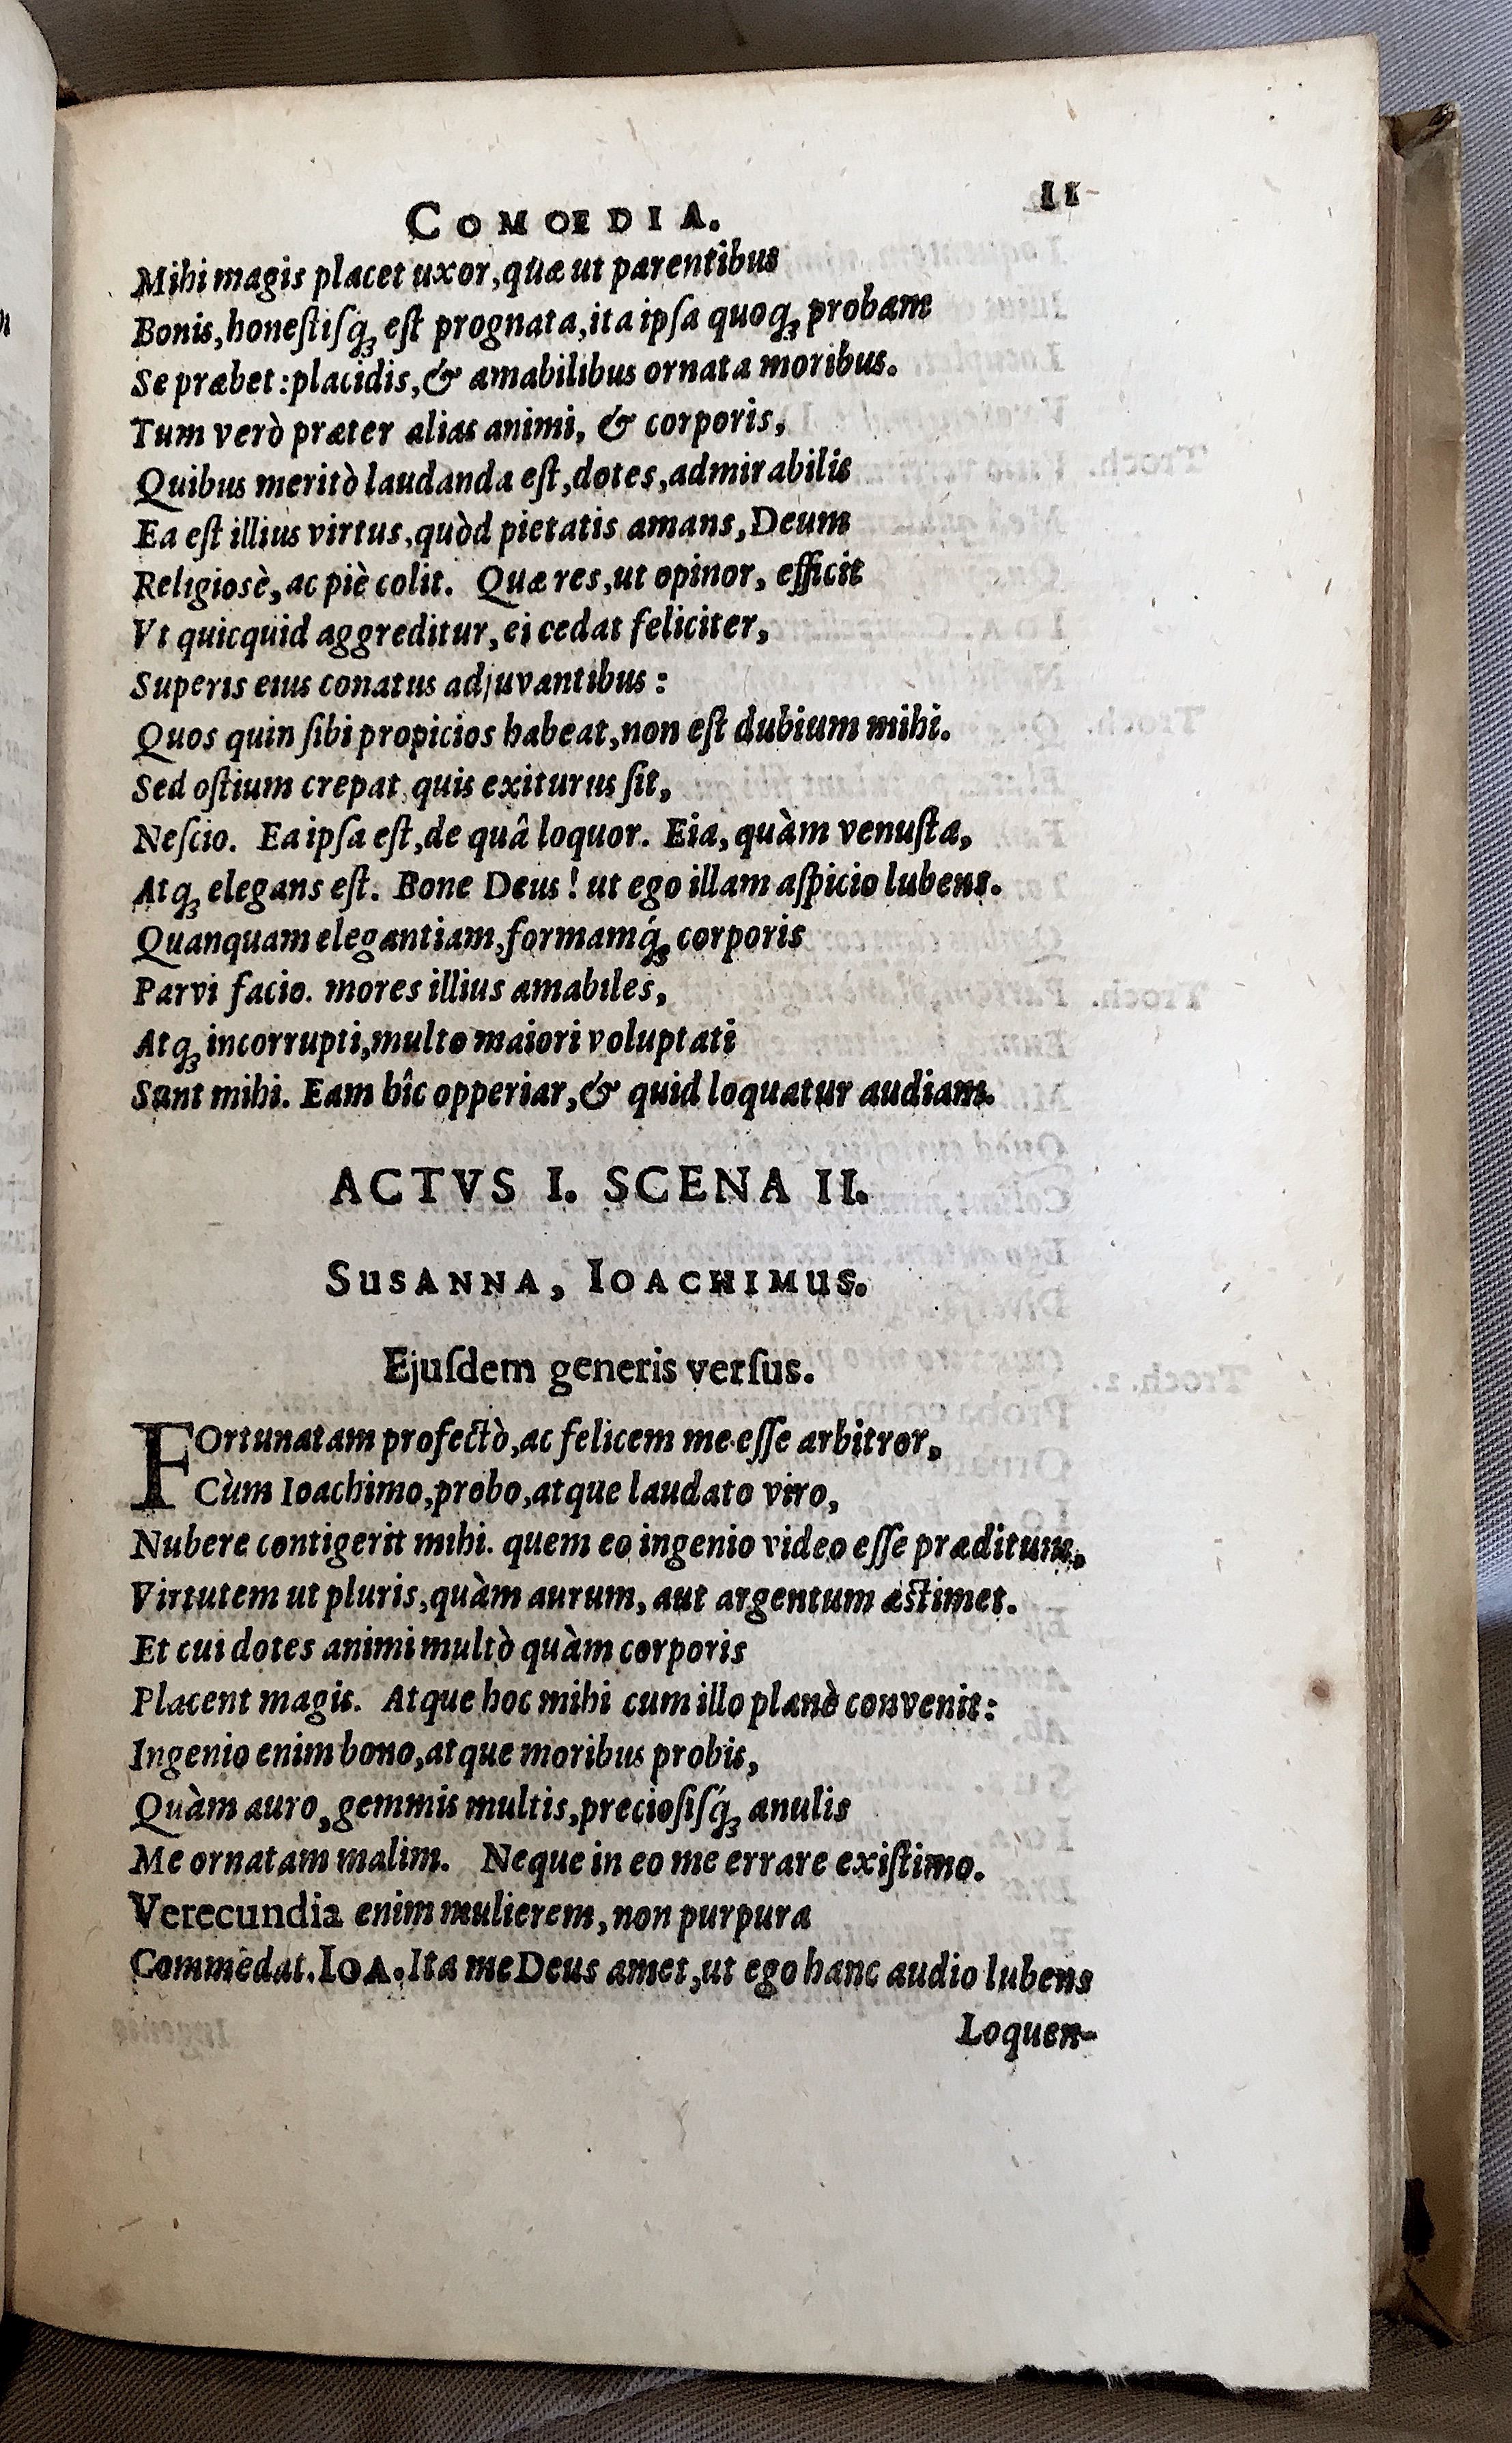 COMOEDIA. 11
Mihi magis placet uxor, quæ ut parentibus
Bonis, honeſtiſq́ꝫ eſt prognata, ita ipſa quoqꝫ probam
Se præbet: placidis, & amabilibus ornata moribus.
Tum verò præter alias animi, & corporis,
Quibus meritò laudanda eſt, dotes, admirabilis
Ea eſt illius virtus, quòd pietatis amans, Deum
Religiosè, ac piè colit. Quæ res, ut opinor, efficit
Vt quicquid aggreditur, ei cedat feliciter,
Superis eius conatus adjuvantibus:
Quos quin ſibi propicios habeat, non eſt dubium mihi.
Sed oſtium crepat quis exiturus ſit,
Neſcio. Ea ipſa eſt, de quâ loquor. Eia, quàm venuſta,
Atqꝫ elegans eſt. Bone Deus! ut ego illam aſpicio lubens.
Quanquam elegantiam, formamq́ꝫ corporis
Parvi facio. mores illius amabiles,
Atqꝫ incorrupti, multo maiori voluptati
Sunt mihi. Eam hîc opperiar, & quid loquatur audiam.
ACTVS I. SCENA II.
SUSANNA, IOACHIMUS.
Ejuſdem generis verſus.
FOrtunatam profectò, ac felicem me eſſe arbitror,
Cùm Ioachimo, probo, atque laudato viro,
Nubere contigerit mihi. quem eo ingenio video eſſe præditum,
Virtutem ut pluris, quàm aurum, aut argentum æſtimet.
Et cui dotes animi multò quàm corporis
Placent magis. Atque hoc mihi cum illo planè convenit:
Ingenio enim bono, atque moribus probis,
Quàm auro, gemmis multis, precioſiſq́ꝫ anulis
Me ornatam malim. Neque in eo me errare exiſtimo.
Verecundia enim mulierem, non purpura
Commēdat. IOA. Ita me Deus amet, ut ego hanc audio lubens
Loquen-